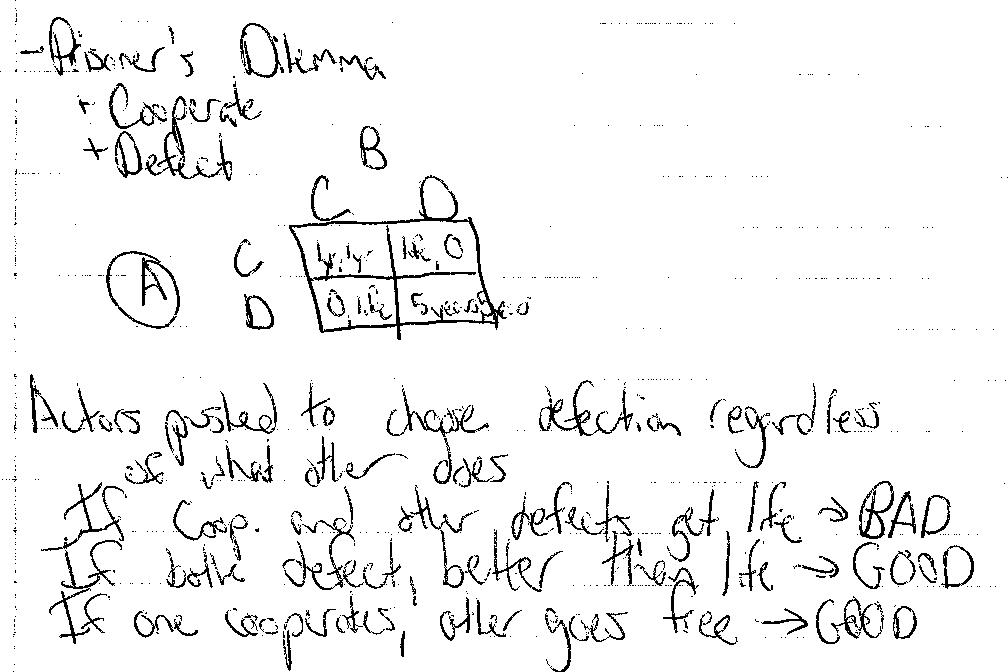 - Prisoner's Dilemma
+ Cooperate
+ Defect
B
C D
C 1yr, 1yr life, 0
A
D 0, life 5 years, 5 years
Actors pushed to choose defection regardless
of what other does
If coop. and other defects, get life → BAD
If both defect, better than life → GOOD
If one cooperates, other goes free → GOOD